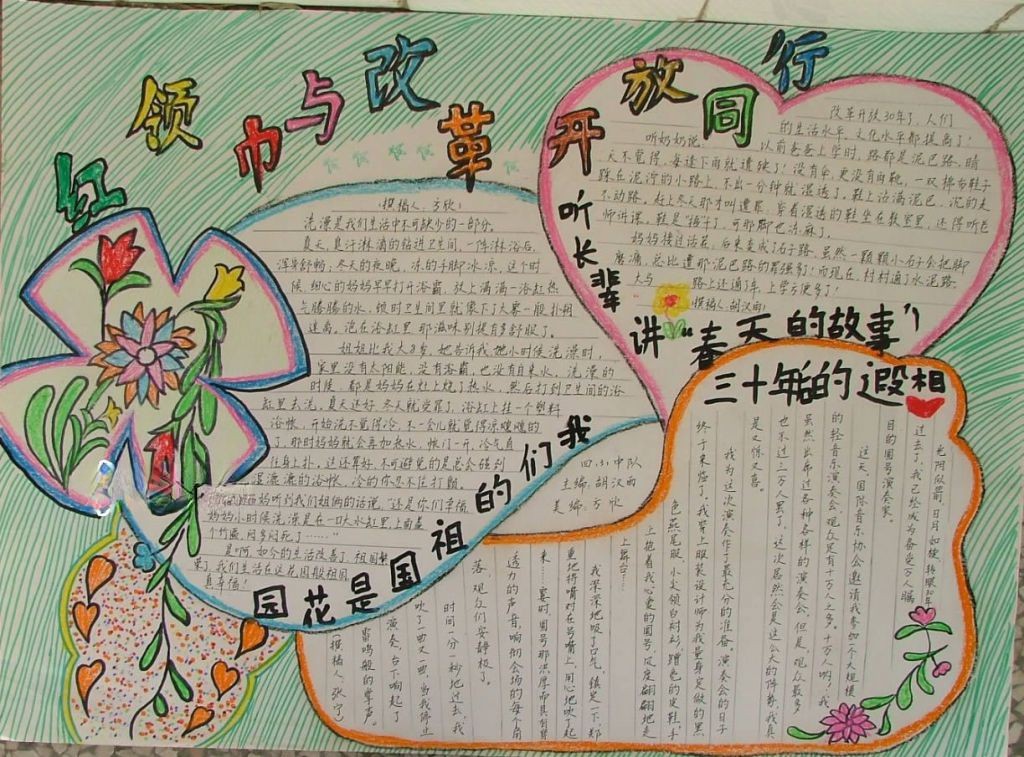 红领巾与改革开放同行
(撰稿人:方欣)
洗澡是我们生活中不可缺少的一部分。
夏天,臭汗淋漓的钻进卫生间,一阵淋浴后,
浑身舒畅;冬天的夜晚,冻的手脚冰凉,这个时
候,细心的妈妈早早打开浴霸,放上满满一浴缸热
气腾腾的水,顿时卫生间里就像下了大雾一般扑朔
迷离,泡在浴缸里,那滋味别提有多舒服了。
姐姐比我大8岁,她告诉我,她小时候洗澡时,
家里没有太阳能,没有浴霸,也没有自来水,洗澡的
时候,都是妈妈在灶上烧了热水,然后打到卫生间的浴
缸里去洗,夏天还好,冬天就受罪了,浴缸上挂一个塑料
浴帐,开始洗不觉得冷,不一会儿就觉得凉飕飕的
了,那时妈妈就会再加热水,帐门一开,冷气直
往身上扑,这还算好,不可避免的是总会碰到
湿漉漉的浴帐,冷的你忍不住打颤。
妈妈听到我们姐俩的话说,“还是你们幸福
妈妈小时候洗澡是在一口大水缸里,上面盖
个竹匾,闷多闷死了……”
是啊,如今的生活改善了,祖国繁
荣了,我们生活在这花园般祖国
真幸福!
我们的祖国是花园
改革开放30年了,人们
的生活水平、文化水平都提高了!
听奶奶说,以前爸爸上学时,路都是泥巴路,晴
天不觉得,每逢下雨就遭殃了!没有伞,更没有雨靴,一双棉布鞋子
踩在泥泞的小路上,不出一分钟就湿透了,鞋上沾满泥巴,沉的走
不动路,赶上冬天那才叫遭罪,穿着湿透的鞋坐在教室里,还得听老
师讲课,鞋是“焐干了,可那脚也冻麻了。
妈妈接过话茬,后来变成了石子路,虽然一颗颗小石子会把脚
磨痛,总比遭那泥巴路的罪强多了!而现在,村村通了水泥路,
大马路上还通了车,上学方便多了!
(撰稿人:胡汉雨)
听长辈讲“春天的故事”!
四.小中队
主编:胡汉雨
美编:方欣
三十年的遐想
光阴似箭,日月如梭,转眼30年
过去了,我已经成为备受万人瞩
目的圆号演奏家。
这天,国际音乐协会邀请我参加一个大规模
的轻音乐演奏会,观众足有十万人之多。十万人啊!我
虽然出席过各种各样的演奏会,但是,观众最多
也不过三万人罢了,这次居然会是这么大的阵势,我真
是又惊又喜。
我为这次演奏作了最充分的准备。演奏会的日子
终于来临了,我穿上服装设计师为我量身定做的黑
色燕尾服、小尖领白衬衫、锃亮的皮鞋,手
上抱着我心爱的圆号,风度翩翩地走
上舞台……
我深深地吸了口气,镇定一下,郑
重地将嘴对在号嘴上,用心地吹了起
来……霎时,圆号那浑厚而具有穿
透力的声音,响彻会场的每个角
落,观众们安静极了。
时间一分一秒地过去,我
吹了一曲又一曲,当我停止
演奏,台下响起了
雷鸣般的掌声。
(撰稿人:张宁)